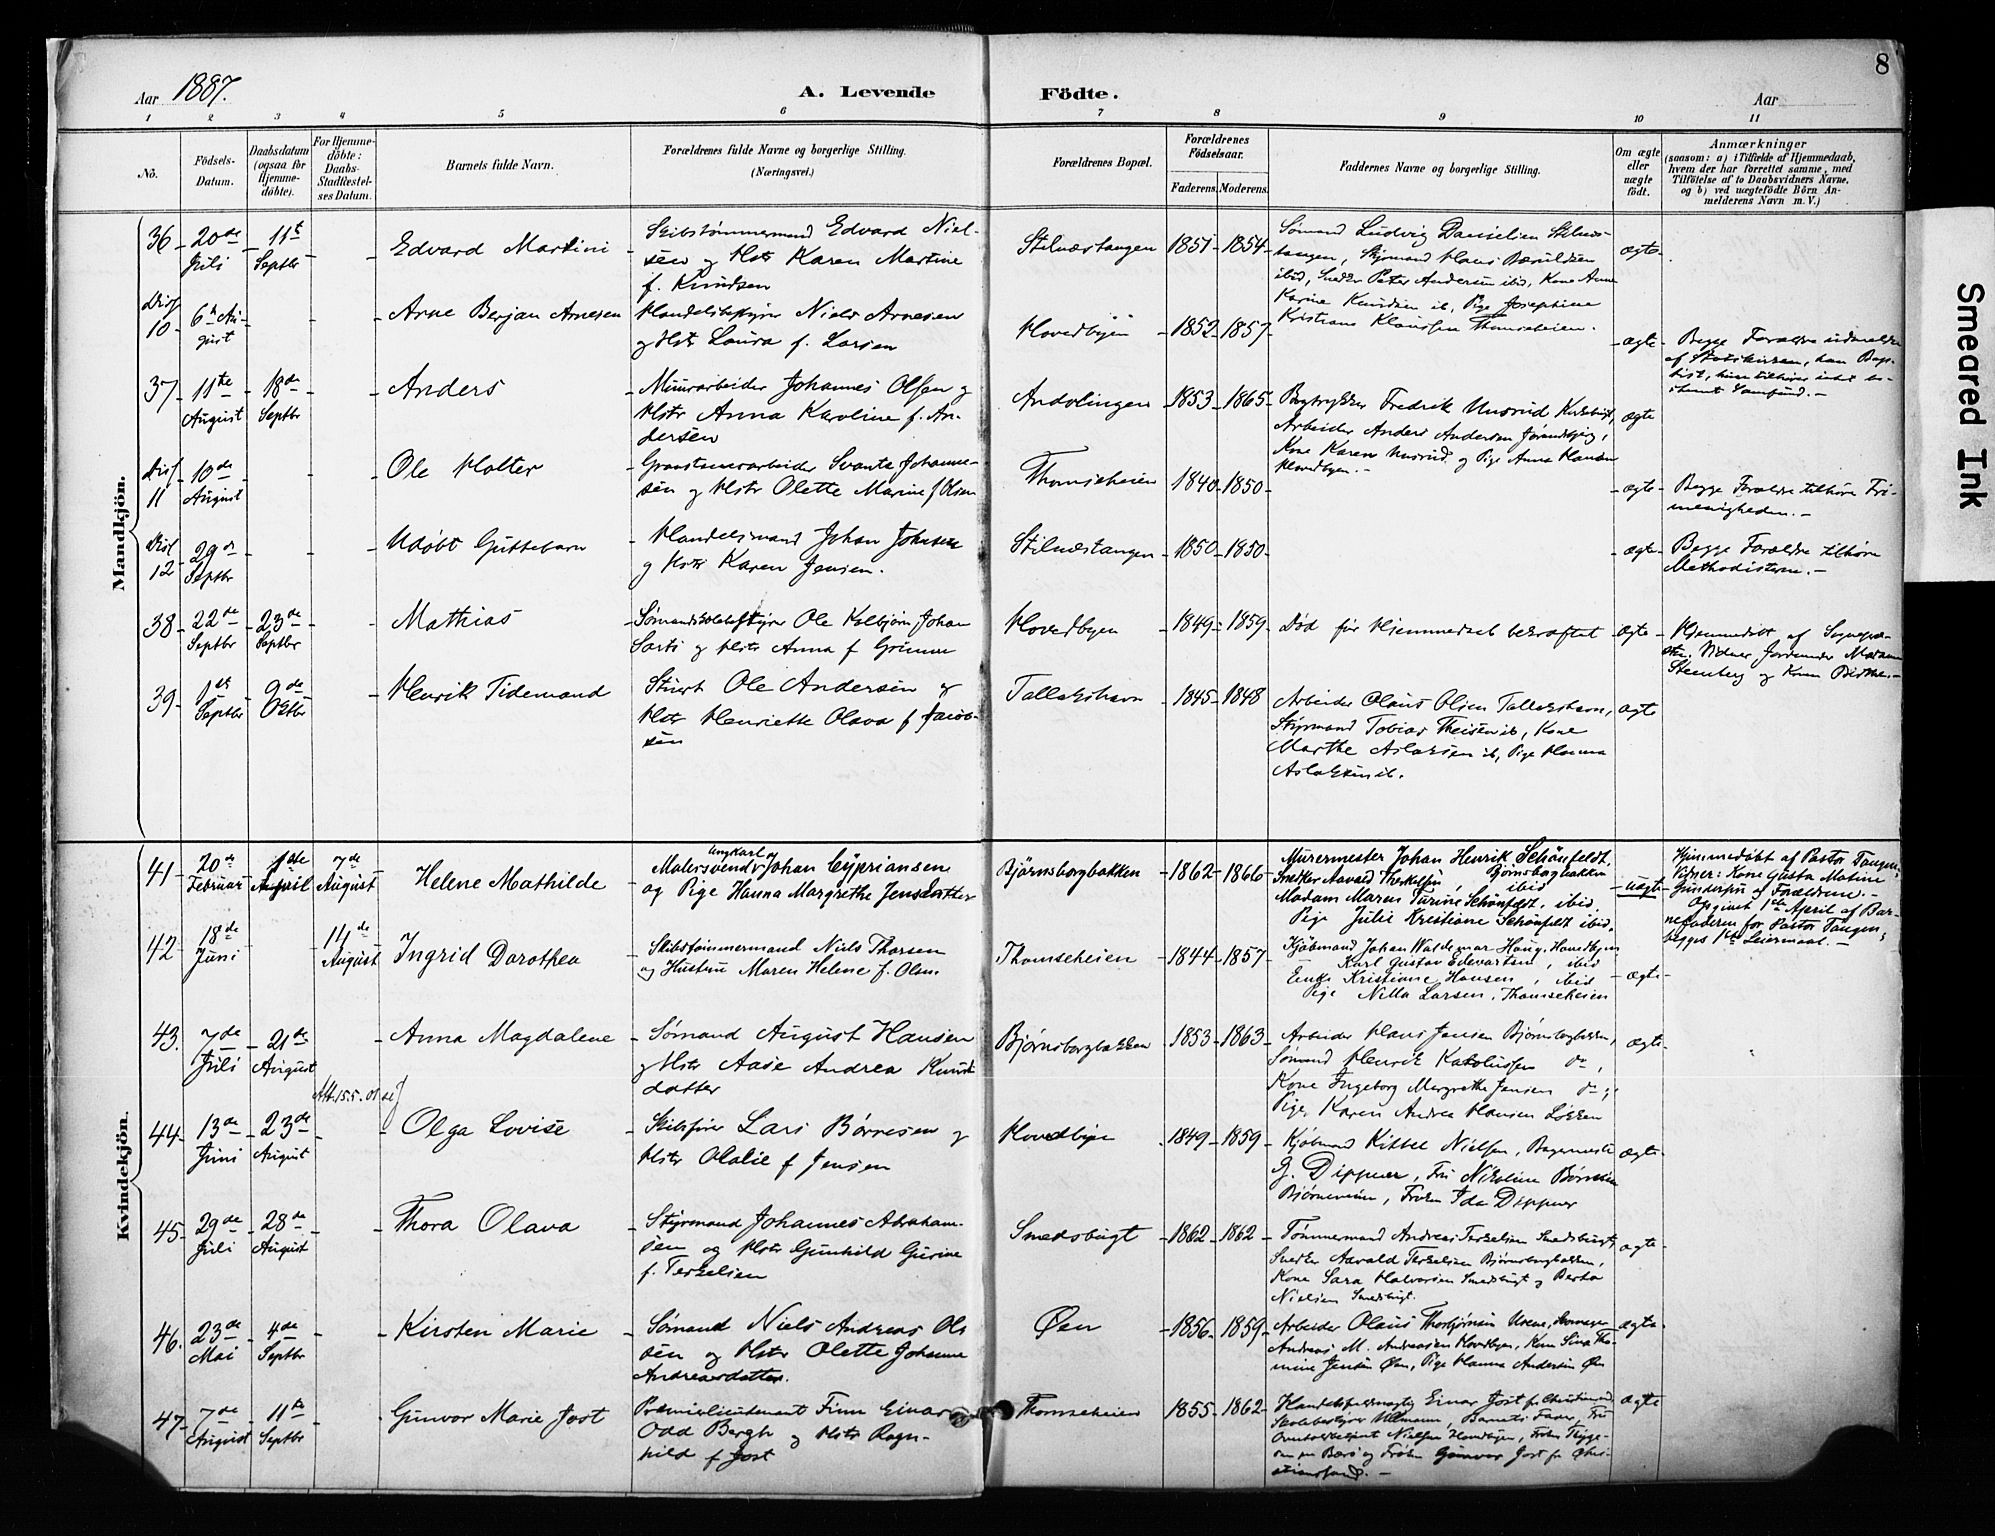 Aar 1887.
A. Levende Födte.
Aar
8
1 2 3 4 5 6 7 8 9 10 11
No.
Födsels-Datum.
Daabsdatum (ogsaa for Hjemmedöbte).
For Hjemmedöbte: Daabs-Stadfæstelses Datum.
Barnets fulde Navn.
Forældrenes fulde Navne og borgerlige Stilling. (Næringsvei.)
Forældrenes Bopæl.
Forældrenes Födselsaar.
Faderens. Moderens.
Faddernes Navne og borgerlige Stilling.
Om ægte eller uægte födt.
Anmærkninger
(saasom: a) i Tilfælde af Hjemmedaab, hvem der har forrettet samme, med Tilföielse af to Daabsvidners Navne, og b) ved uægtefödte Börn Anmelderens Navn m. V.)
Mandkjön.
36 20de Juli 11te Septbr
Edvard Martini
Skibstømmermand Edvard Nielsen og Hstr Karen Martine f. Knudsen
Stilnæstangen 1851 1854
Sømand Ludvig Danielsen Stilnæstangen, Styrmand Hans
ibid, Snedker Peter Andersen ibid, Kone Anne
Karine Knudsen ib, Pige Josephine
Kristiane Klausen Thomseheien.
ægte
Diss 10 6te August
Arne Berjan Arnesen
Handelsbestyrer Niels Arnesen og Hstr Laura f. Larsen
Hovedbyen 1852 1857
ægte
Begge Forældre udmeldte
af Statskirken, han Baptist, hun tilhører intet bestemt Samfund.
37 11te August 18de Septbr
Anders
Muurarbeider Johannes Olsen og Hstr Anna Karoline f. Andersen
Andvlingen 1853 1865
Bogtrykker Fredrik Unsrud
Arbeider Anders Andersen
Kone Karen Unsrud og Pige Anna Hansen
Hovedbyen.
ægte
Diss 11 10de August
Ole Holter
Graastensarbeider Svante Johannesen og Hstr Olette Marine f Olsen
Thomseheien 1840 1850
ægte
Begge Forældre tilhøre Frimenigheden.
Diss 12 29de Septbr
Udøbt Guttebarn
Handelsmand Johan Johnsen og Hstr Karen Jensen.
Stilnæstangen 1850 1850
ægte
Begge Forældre tilhøre Methodisterne.
38 22de Septbr 23de Septbr
Mathias
Sømandsskolebestyrer Ole Kolbjørn Johan Sartz og Hstr Anna f Grimm
Hovedbyen 1849 1859
Død før Hjemmedaab bekræftet
ægte
Hjemmedøbt af Sognepræsten. Vidner Jordemoder Madam
Steenberg og Konen
39 1ste Septbr 9de Octbr
Henrik Tidemand
Stuert Ole Andersen og Hstr Henriette Olava f Jacobsen
Tallakshavn 1845 1848
Arbeider Olaus Olsen Tallakshavn,
Styrmand Tobias Theisen ib, Kone
Marthe Aslaksen ib, Pige Hanna
Aslaksen ib.
ægte
Kvindekjön.
41 20de Februar 1ste April 7de August
Helene Mathilde
Malersvend ungkarl og Johan Cypriansen
og Pige Hanna Margrethe Jensdatter
Bjørnsborgbakken 1862 1866
Murermester Johan Henrik Schönfeldt,
Snedker Aavald Therkelsen, Bjørnsborgbakken ibid
Madam Maren Turine Schönfeldt, ibid
Pige Julie Kristiane Schönfeldt ibid.
uægte
Hjemmedøbt af Pastor Tangen,
Vidner: Kone Gusta Matine
Gundersen og Forældrene.
Opgivet 1ste April af Barnefaderen for Pastor Tangen;
begges 1ste Leiermaal.
42 18de Juni 14de August
Ingrid Dorothea
Skibstømmermand Niels Thorsen
og Hustru Maren Helene f. Olsen
Thomseheien 1844 1857
Kjøbmand Johan Waldemar Haug, Hovedbyen
Karl Gustav Edvartsen, ibid
Enke Kristiane Hansen, ibid
Pige Nilla Larsen, Thomseheien
ægte
43. 7de Juli 21de August
Anna Magdalene
Sømand August Hansen og Hstr Aase Andrea Knudsdatter
Bjørnsborgbakken 1853 1863
Arbeider Hans Jensen Bjørnsborgbakken,
Sømand Henrik Karolussen do,
Kone Ingeborg Margrethe Jensen do;
Pige Karen Andrea Hansen Løkken
ægte
Att. 15.5.01
44 13de Juni 23de August
Olga Lovise
Skibsfører Lars Børresen og Hstr Olalie f Jensen
Hovedbyen 1849 1859
Kjøbmand Kittel Nielsen, Bagermester
G. Dippner, Fru Nikoline Børresen
Bjørneveien, Frøken Ida Dippner
ægte
45 29de Juli 28de August
Thora Olava
Styrmand Johannes Abrahamsen og Hstr Gunhild Gurine f. Terkelsen
Smedsbugt 1862 1862
Tømmermand Andreas Terkelsen Smedsbugt,
Snedker Aavald Terkelsen Bjørnsborgbakken,
Kone Sara Halvorsen Smedsbugt og Berta
Nielsen Smedsbugt.
ægte
46. 23de Mai 4de Septbr
Kirsten Marie
Sømand Niels Andreas Olsen og Hstr Olette Johanne Andreasdatter.
Øen 1856 1859
Arbeider Olaus Thorbjørnsen
Andreas M. Andreassen Hovedbyen, Kone Sina Thomine Jensen Øen, Pige Hanna Andersen Øen
ægte
47 7de August 11te Septbr
Gunvor Marie Jost
Premierlieutenant Finn Einar Odd Bergh og Hstr Ragnhild f Jost
Thomseheien 1855 1862
Handelsfuldmægtig Einar Jost fr Christiansand
Skolebestyrer Ullmann, Barnets Fader, Fru
Overtoldbetjent Nielsen Hovedbyen, Frøken
og Frøken Gunvor Jost fr Christianssand.
ægte
Smeared Ink